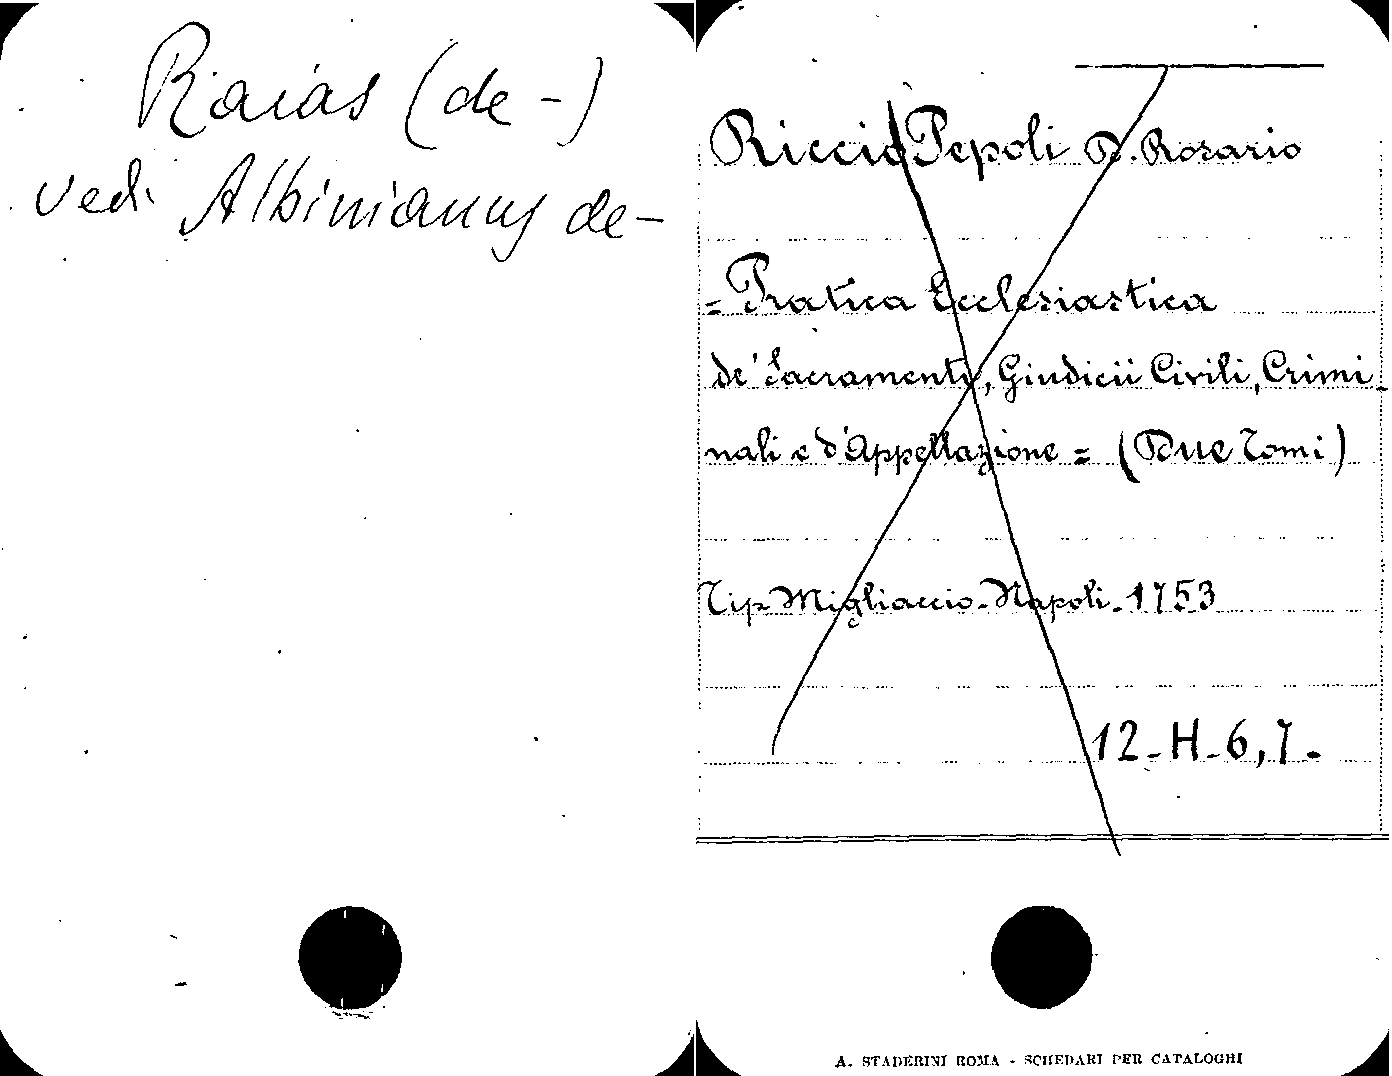 Raias (de -)
vedi Albinianus de -
Riccio Pepoli D. Rosario
= Pratica Ecclesiastica
de' Sacramenti, Giudicii Civili, Crimi-
nali e d'Appellazione = (Due Tomi)
Tip. Migliaccio - Napoli - 1753
12 - H - 6, 7.
A. STADERINI ROMA - SCHEDARI PER CATALOGHI